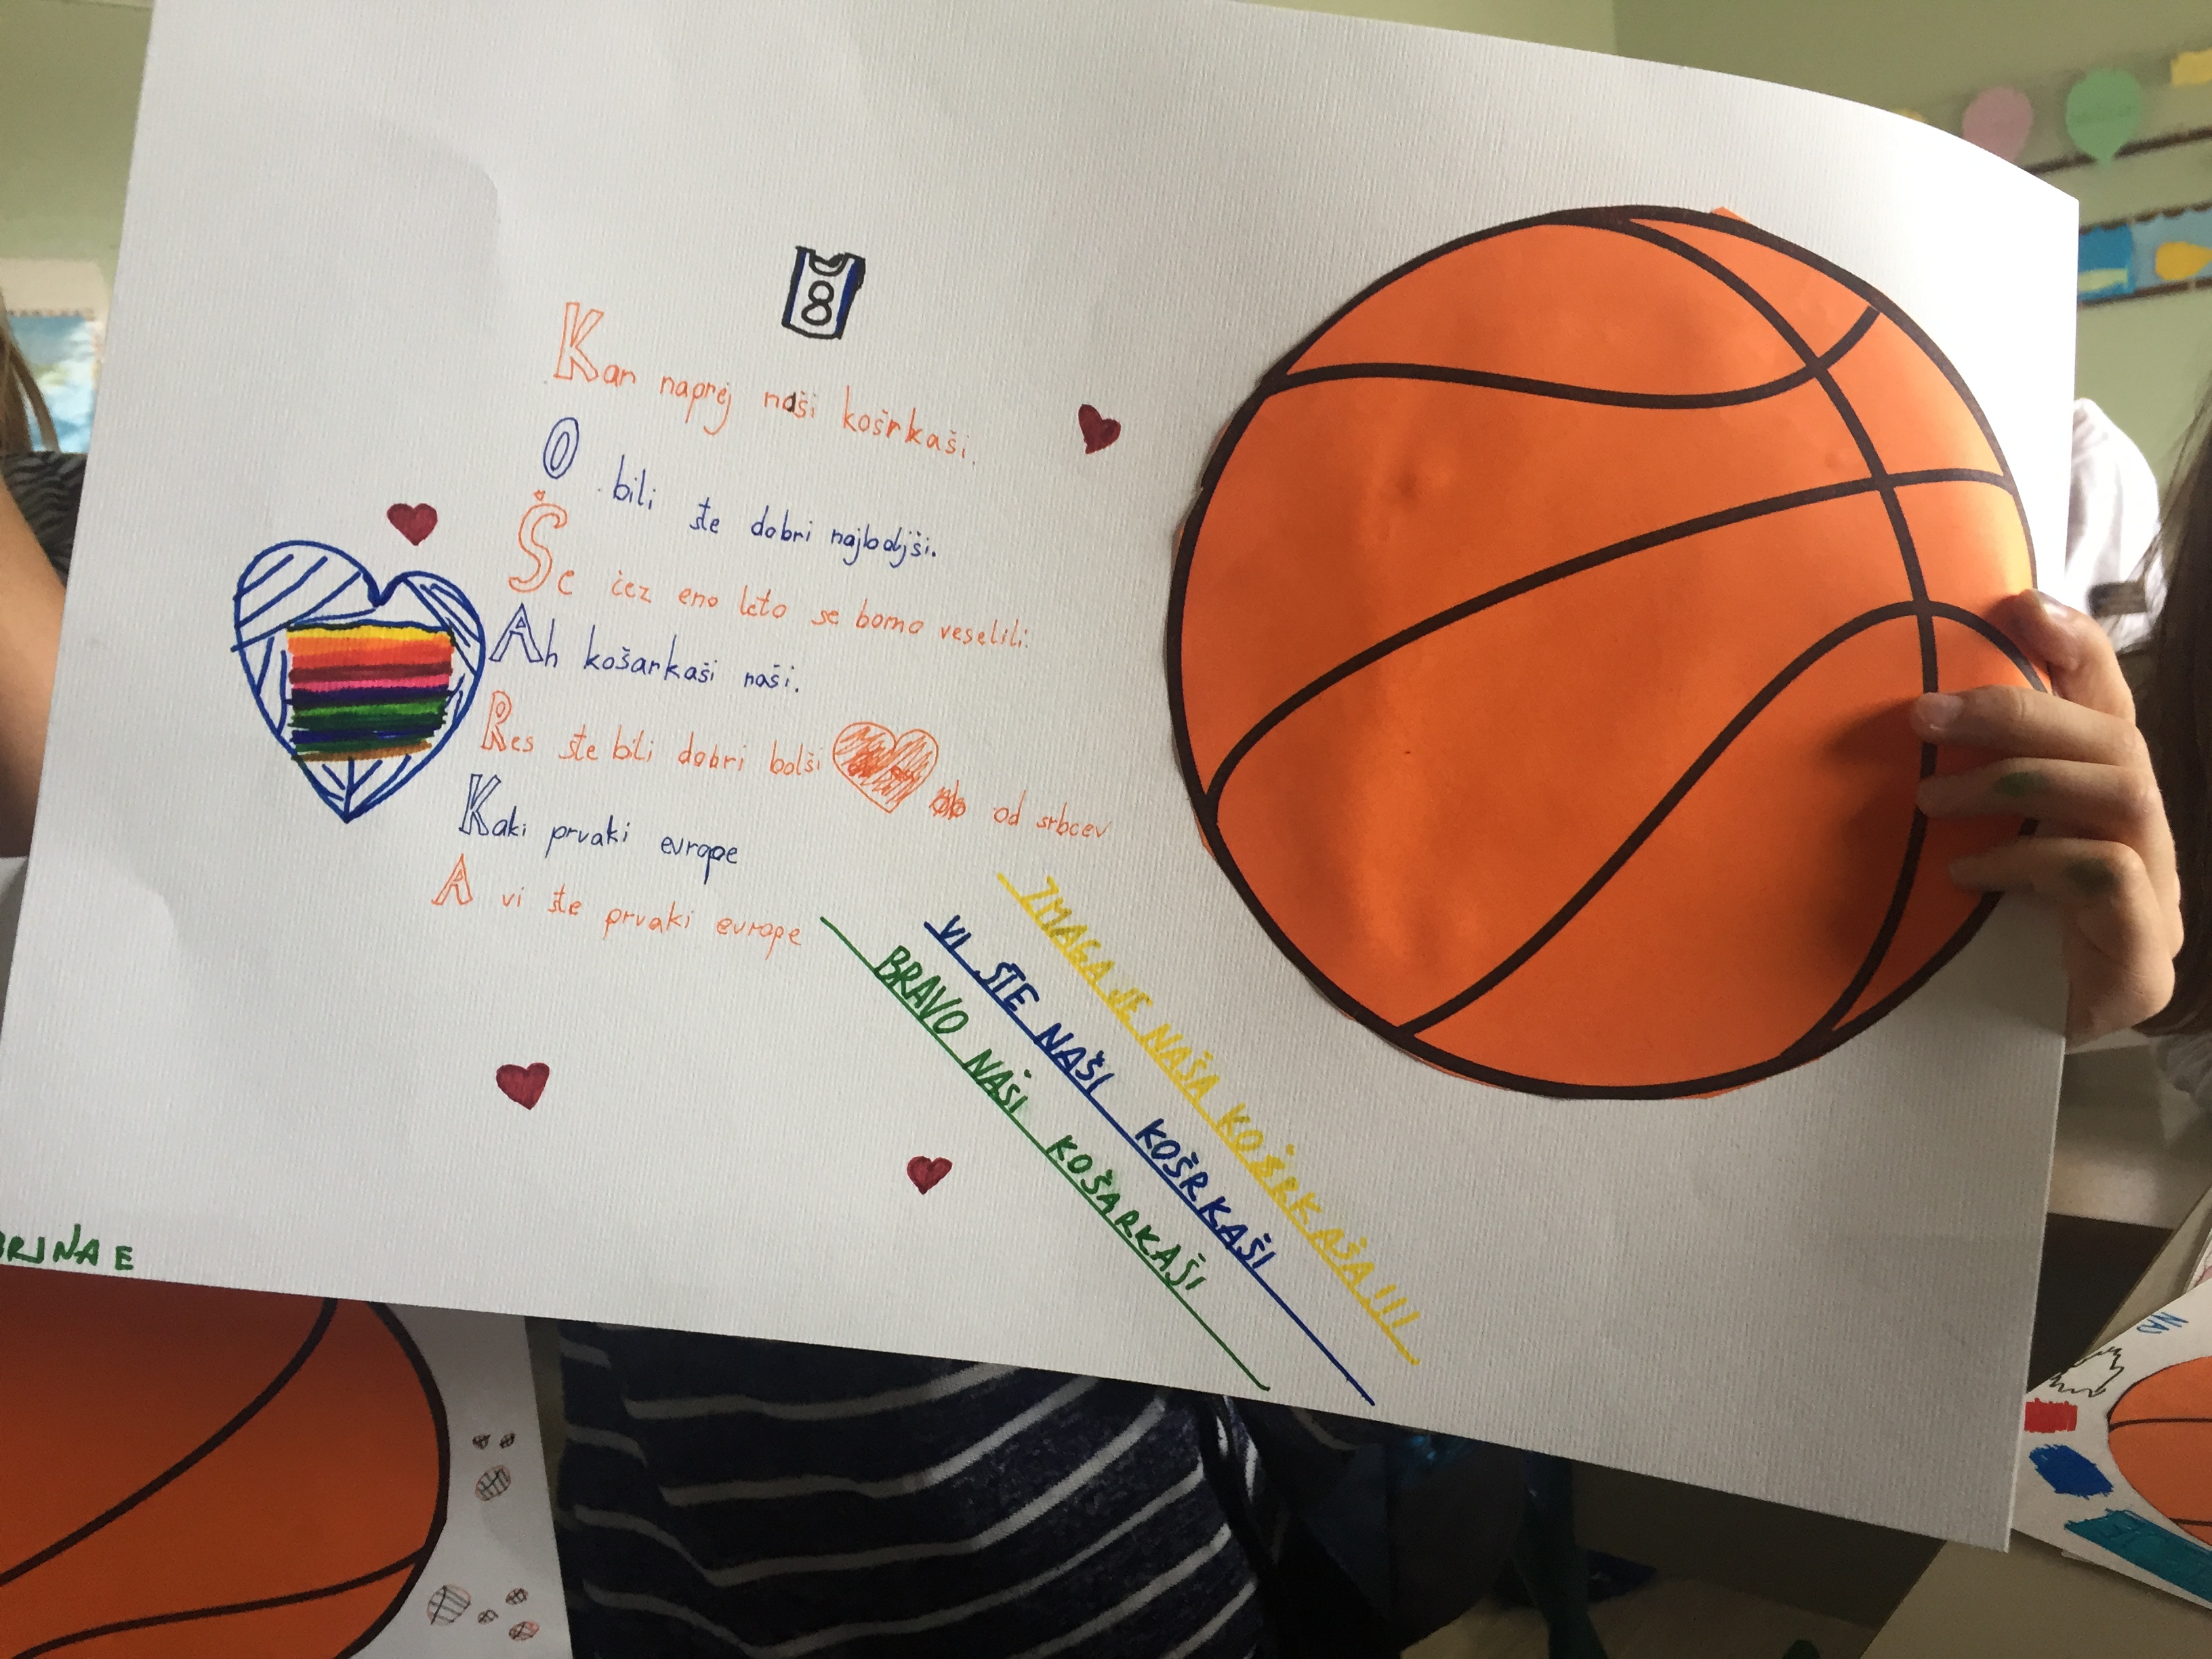 8
Kar naprej naši košrkaši.
O bili ste dobri najboljši.
Še čez eno leto se bomo veselili.
Ah košarkaši naši.
Res ste bili dobri bolši od srbcev
Kaki prvaki evrope
A vi ste prvaki evrope
ZMAGA JE NAŠA KOŠRKAŠA!!!
VI STE NAŠI KOŠRKAŠI
BRAVO NAŠI KOŠARKAŠI
RINA E